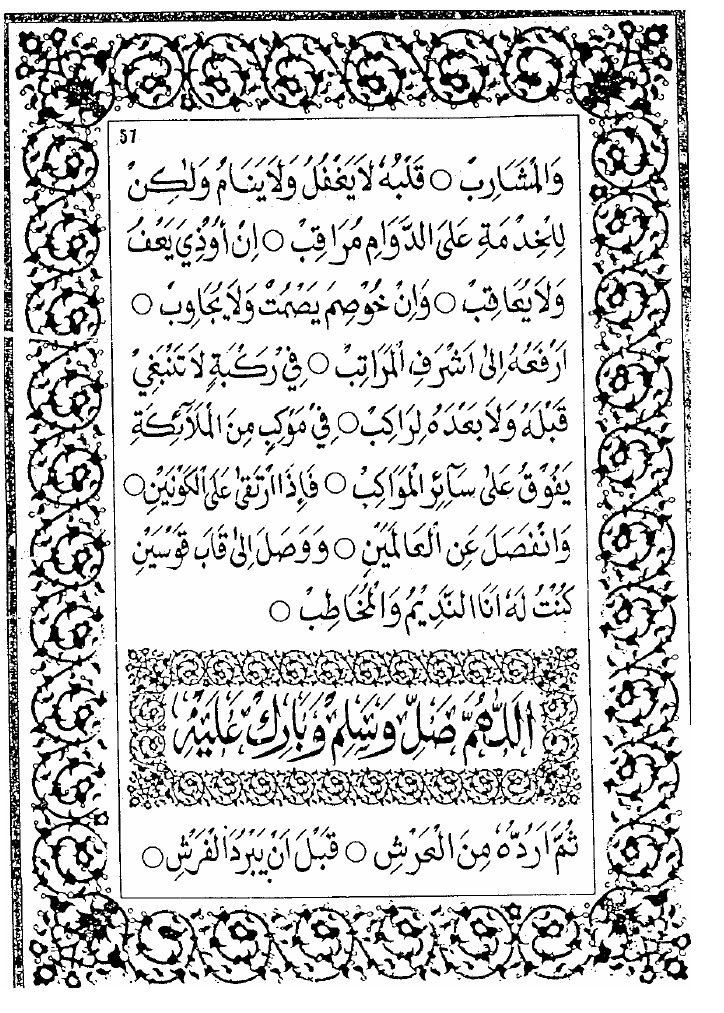 57
وَالْمَشَارِبْ ○ قَلْبُهُ لَا يَغْفُلُ وَلَا يَنَامُ وَلٰكِنْ
لِلْخِدْمَةِ عَلَى الدَّوَامِ مُرَاقِبْ ○ اِنْ اُوْذِيَ يَعْفُ
وَلَا يُعَاقِبْ ○ وَاِنْ خُوْصِمَ يَصْمُتْ وَلَا يُجَاوِبْ ○
اَرْفَعُهُ اِلٰى اَشْرَفِ الْمَرَاتِبْ ○ فِيْ رَكْبَةٍ لَا تَنْبَغِيْ
قَبْلَهُ وَلَا بَعْدَهُ لِرَاكِبْ ○ فِيْ مَوْكِبٍ مِنَ الْمَلَآئِكَةِ
يَفُوْقُ عَلٰى سَآئِرِ الْمَوَاكِبْ ○ فَاِذَا ارْتَقٰى عَلَى الْكَوْنَيْنِ ○
وَانْفَصَلَ عَنِ الْعَالَمَيْنِ ○ وَوَصَلَ اِلٰى قَابَ قَوْسَيْنِ
كُنْتُ لَهُ اَنَا النَّدِيْمُ وَالْمُخَاطِبْ ○
اَللّٰهُمَّ صَلِّ وَسَلِّمْ وَبَارِكْ عَلَيْهْ
ثُمَّ اَرُدُّهُ مِنَ الْعَرْشِ ○ قَبْلَ اَنْ يَبْرُدَ الْفَرْشِ ○